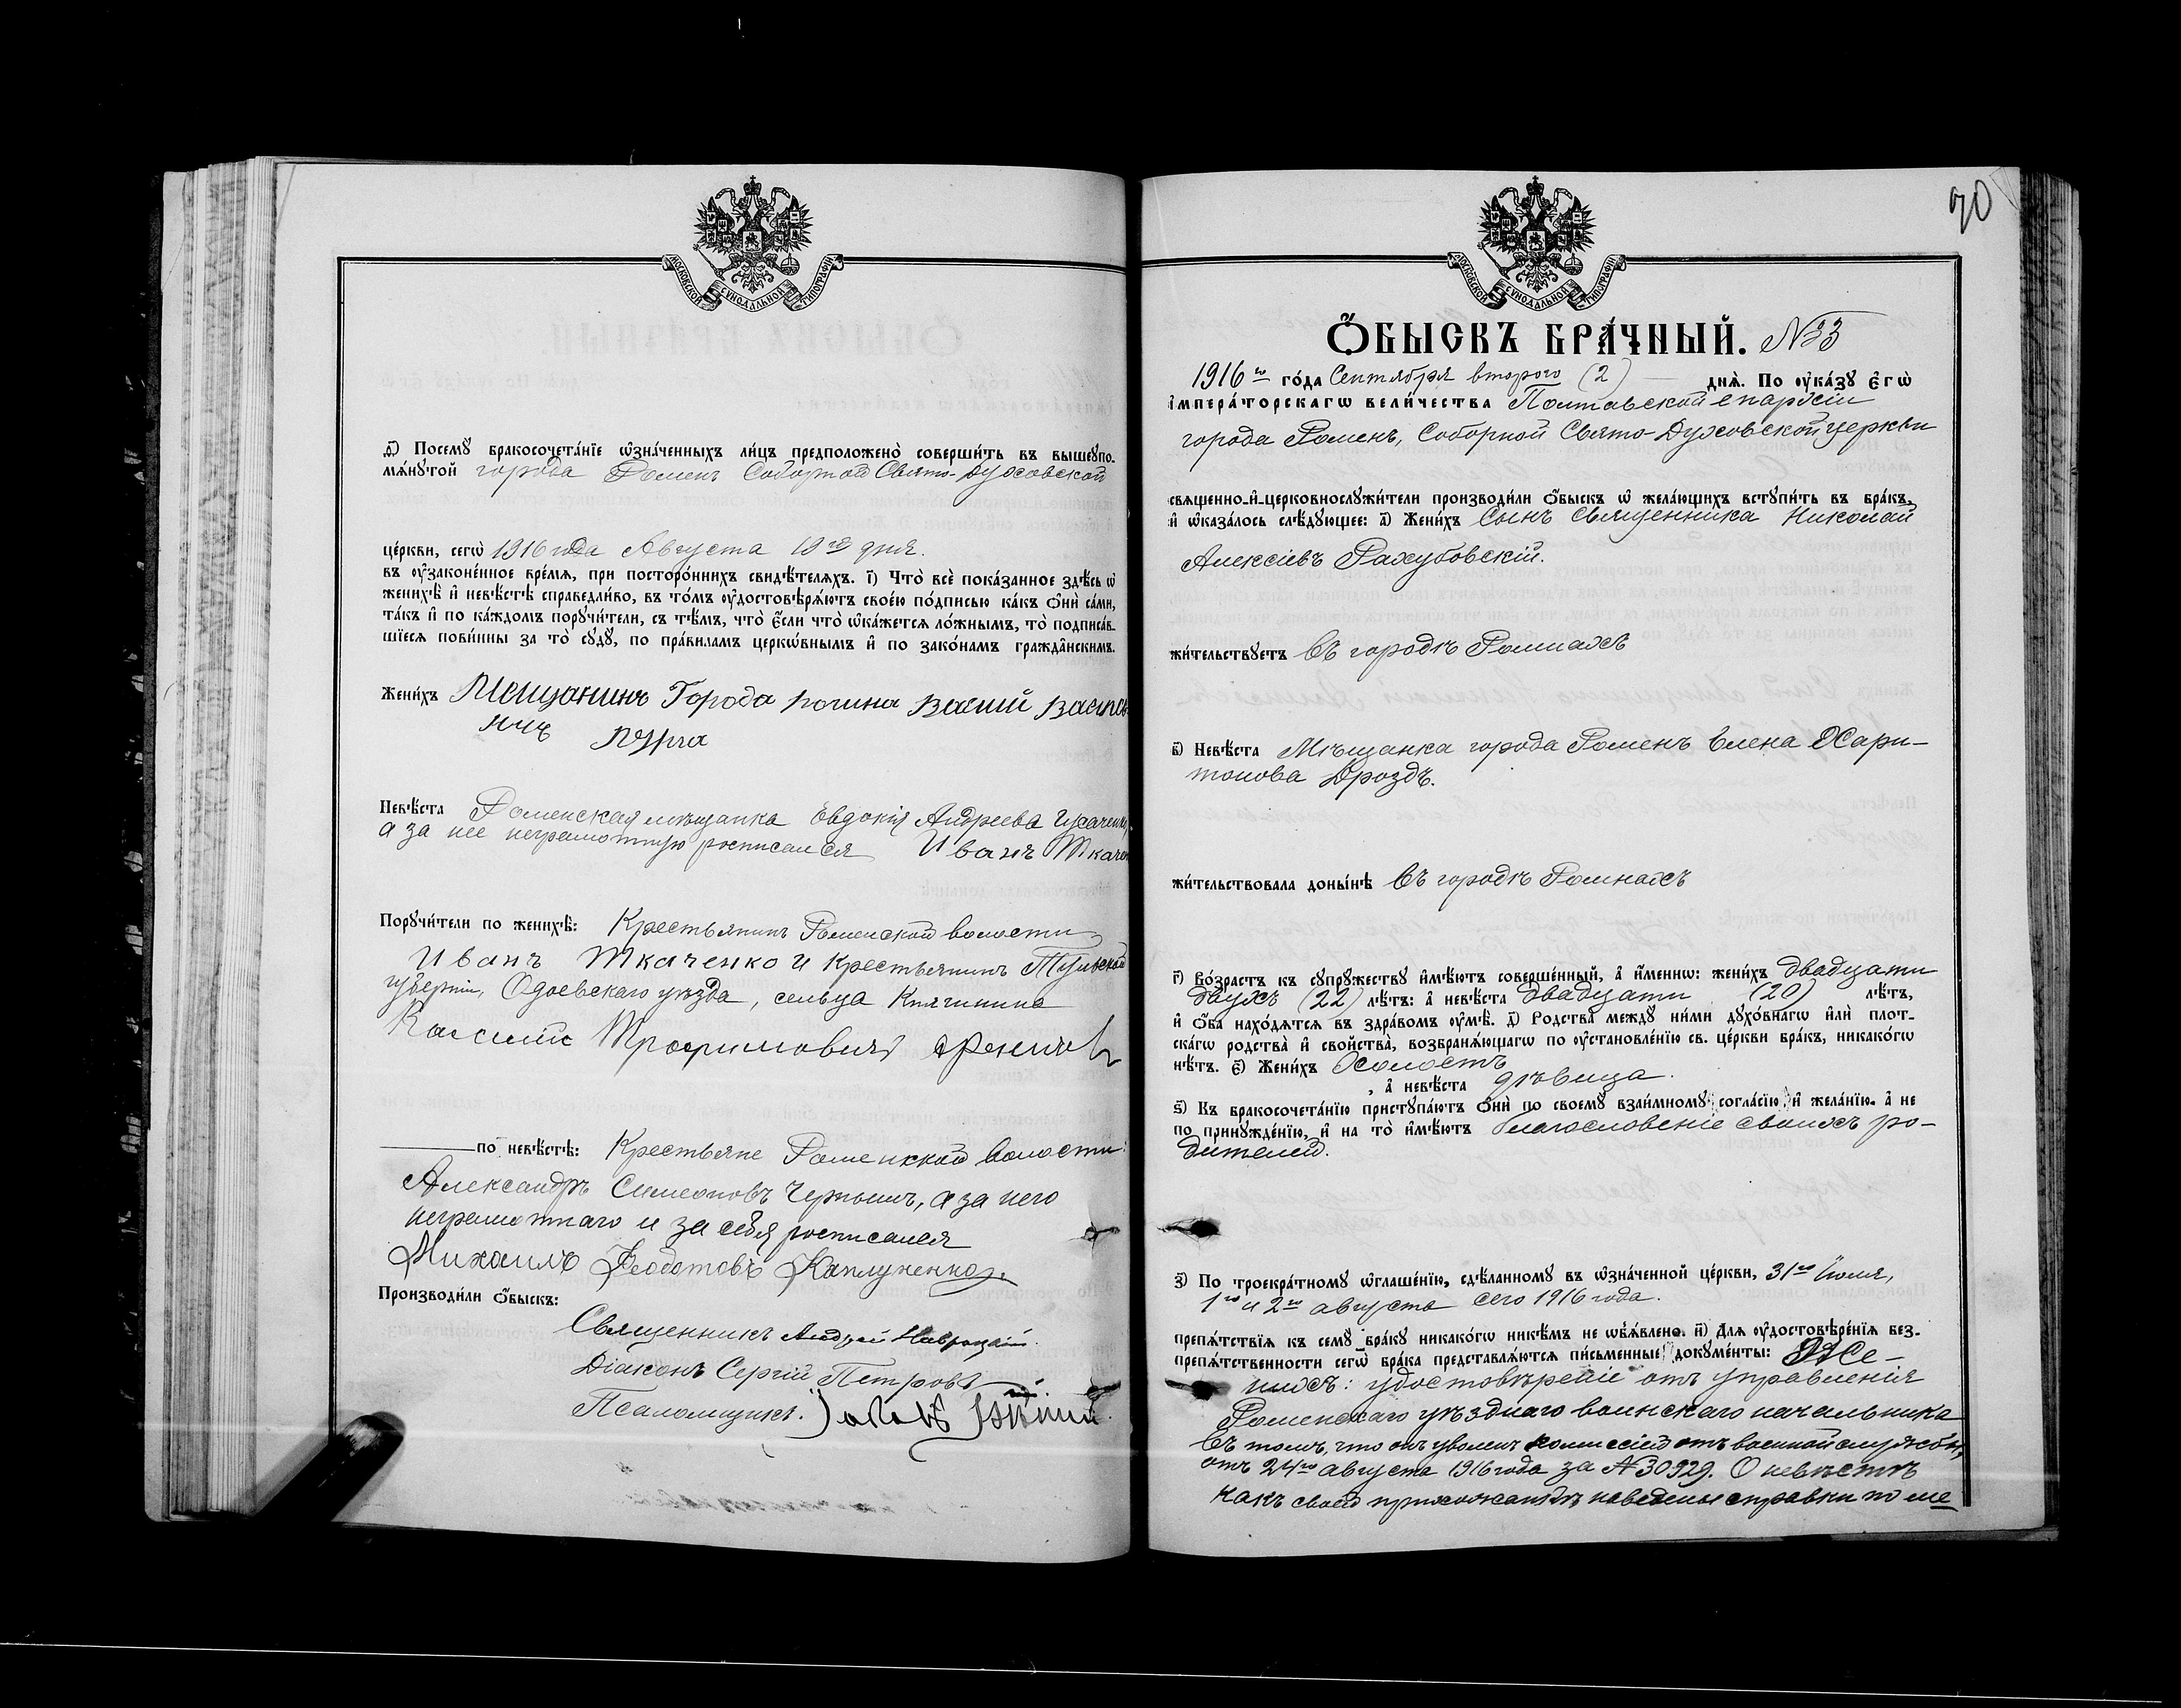 МОСКОВСКОЙ СѴНОДАЛЬНОЙ ТИПОГРАФІИ
д҃) Посемꙋ̀ бракосочета́нїе ѡ҆зна́ченныхъ ли́цъ предположено̀ соверши́ть въ вышеꙋпо-
мѧ́нꙋтой города Роменъ Соборной Свято-Духовской
це́ркви, сегѡ̀ 1916 года Августа 19го дня.
въ ᲂу҆зако́ненное вре́мѧ, при посторо́ннихъ свидѣ́телѧхъ. і҃) Что̀ всѐ пока́занное здѣ́сь ѡ҆
женихѣ̀ и҆ невѣ́стѣ справедли́во, въ то́мъ ᲂу҆достовѣрѧ́ютъ свое́ю по́дписью ка́къ ѻ҆нѝ са́ми,
та́къ и҆ по ка́ждомъ порꙋчи́тели, съ тѣ́мъ, что̀ є҆́сли что̀ ѡ҆ка́жетсѧ ло́жнымъ, то̀ подписа́в-
шїесѧ пови́нны за то̀ сꙋдꙋ̀, по пра́виламъ церкѡ́внымъ и҆ по зако́намъ гражда̂нскимъ.
Жени́хъ Мещанинъ Города
Невѣ́ста Роменская мѣщанка Евдокія Андреева
а за нее неграмотную росписался Иванъ Ткачен
Порꙋчи́тели по женихѣ̀: Крестьянинъ Роменской волости
Иванъ Ткаченко и Крестьянинъ Тульской
губерніи, Одоевскаго уѣзда, сельца Княгинина
Трофимовичъ
по невѣ́стѣ: Крестьяне Роменской волости:
Александръ Симеоновъ Чернышъ, а за него
неграмотнаго и за себя росписался
Михаилъ Феодотовъ Каплуненко.
Производи́ли ѻ҆́быскъ:
Священникъ Андрей Навроцкій.
Діаконъ Сергій Петровъ
Псаломщикъ.
90
МОСКОВСКОЙ СѴНОДАЛЬНОЙ ТИПОГРАФІИ
Ѻ҆́БЫСКЪ БРА́ЧНЫЙ. №33
1916го го́да Сентября второго (2) днѧ̀. По ᲂу҆ка́зꙋ є҆гѡ̀
и҆мпера́торскагѡ вели́чества Полтавской епархіи
города Роменъ, Соборной Свято-Духовской церкви
свѧщенно-и҆-церковнослꙋжи́тели производи́ли ѻ҆́быскъ ѡ҆ жела́ющихъ встꙋпи́ть въ бра́къ,
и҆ ѡ҆каза́лось слѣ́дꙋющее: а҃) Жени́хъ Сынъ Священника Николай
Алексіевъ Рахубовскій.
жи́тельствꙋетъ въ городѣ Ромнахъ
в҃) Невѣ́ста Мѣщанка города Роменъ Елена Хари-
тонова Дроздъ.
жи́тельствовала доны́нѣ въ городѣ Ромнахъ
г҃) Во́зрастъ къ сꙋпрꙋ́жествꙋ и҆мѣ́ютъ соверше́нный, а҆ и҆́менно: жени́хъ двадцати
двухъ (22) лѣ́тъ: а҆ невѣ́ста двадцати (20) лѣ́тъ,
и҆ ѻ҆́ба нахо́дѧтсѧ въ здра́вомъ ᲂу҆мѣ̀. д҃) Родства̀ междꙋ̀ ни́ми дꙋхо́внагѡ и҆лѝ плот-
ска́гѡ родства̀ и҆ свойства̀, возбранѧ́ющагѡ по ᲂу҆становле́нїю св. це́ркви бра́къ, никако́гѡ
нѣ́тъ. є҃) Жени́хъ холостъ
, а҆ невѣ́ста дѣвица.
ѕ҃) Къ бракосочета́нїю пристꙋпа́ютъ ѻ҆нѝ по своемꙋ̀ взаи́мномꙋ согла́сїю и҆ жела́нїю. а҆ не
по принꙋжде́нїю, и҆ на то̀ и҆мѣ́ютъ благословеніе своихъ ро-
дителей.
з҃) По троекра́тномꙋ ѡ҆глаше́нїю, сдѣ́ланномꙋ въ ѡ҆зна́ченной це́ркви, 31го Іюля,
1го и 2го августа сего 1916 года.
препѧ́тствїѧ къ семꙋ̀ бра́кꙋ никако́гѡ никѣ́мъ не ѡ҆б̾ѧ́влено. и҃) Длѧ ᲂу҆достовѣре́нїѧ без-
препѧ́тственности сегѡ̀ бра́ка представлѧ́ютсѧ пи́сьменные докꙋме́нты: Же-
нихъ: удостовѣреніе отъ управленія
Роменскаго уѣзднаго воинскаго начальника
въ томъ, что онъ уволенъ комиссіей отъ военной службы,
отъ 24го августа 1916 года за №30929. О невѣстѣ
какъ своей прихожанкѣ наведены справки по ме